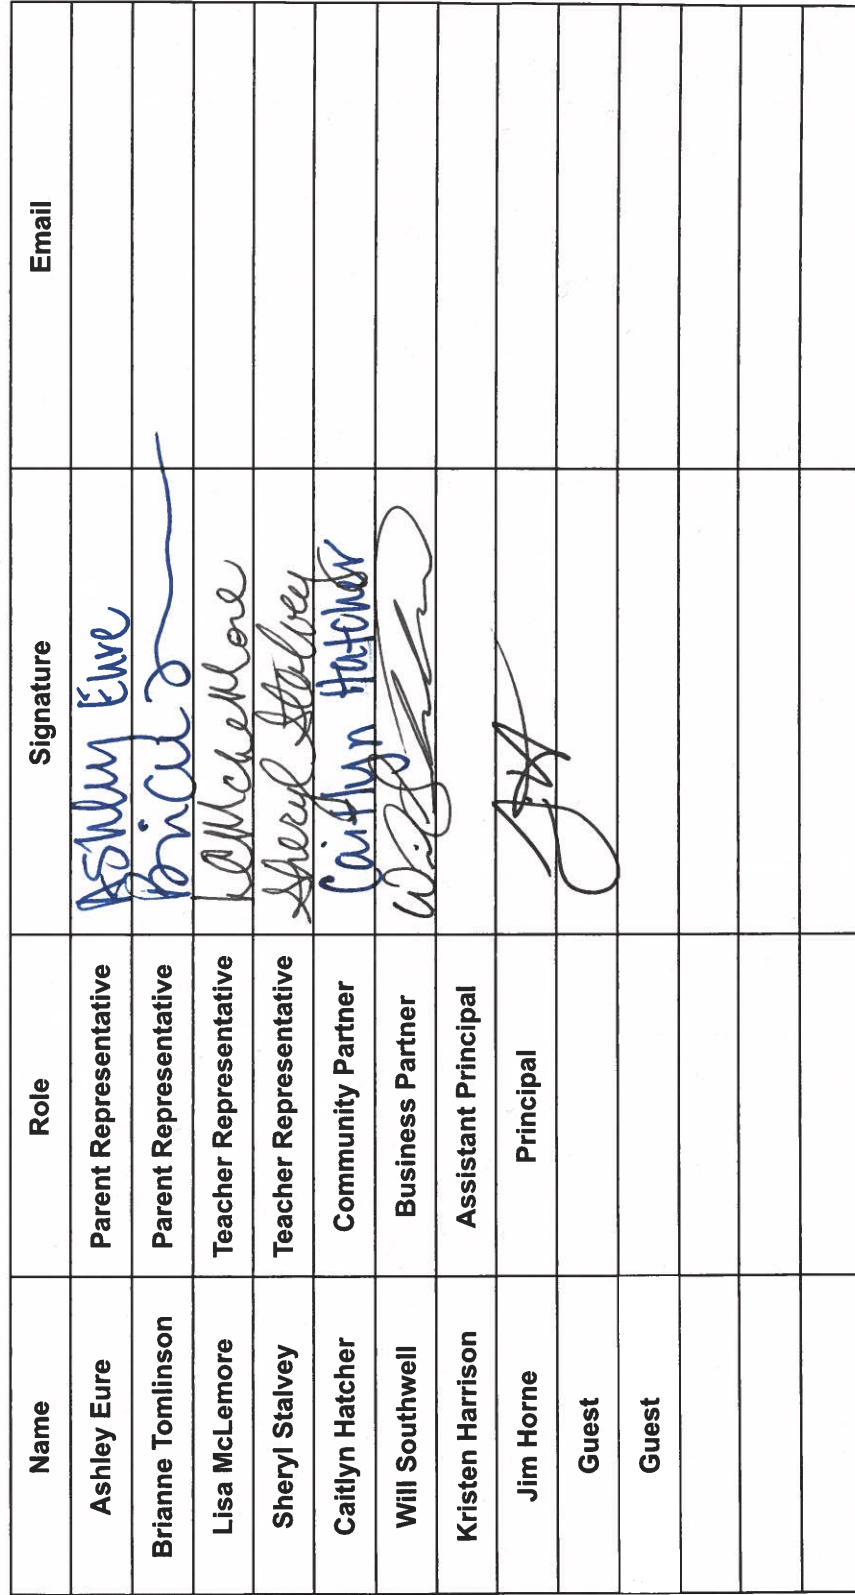 Name Role Signature Email
Ashley Eure Parent Representative Ashley Eure
Brianne Tomlinson Parent Representative
Lisa McLemore Teacher Representative LMcLemore
Sheryl Stalvey Teacher Representative Sheryl Stalvey
Caitlyn Hatcher Community Partner Caitlyn Hatcher
Will Southwell Business Partner Will
Kristen Harrison Assistant Principal
Jim Horne Principal
Guest
Guest